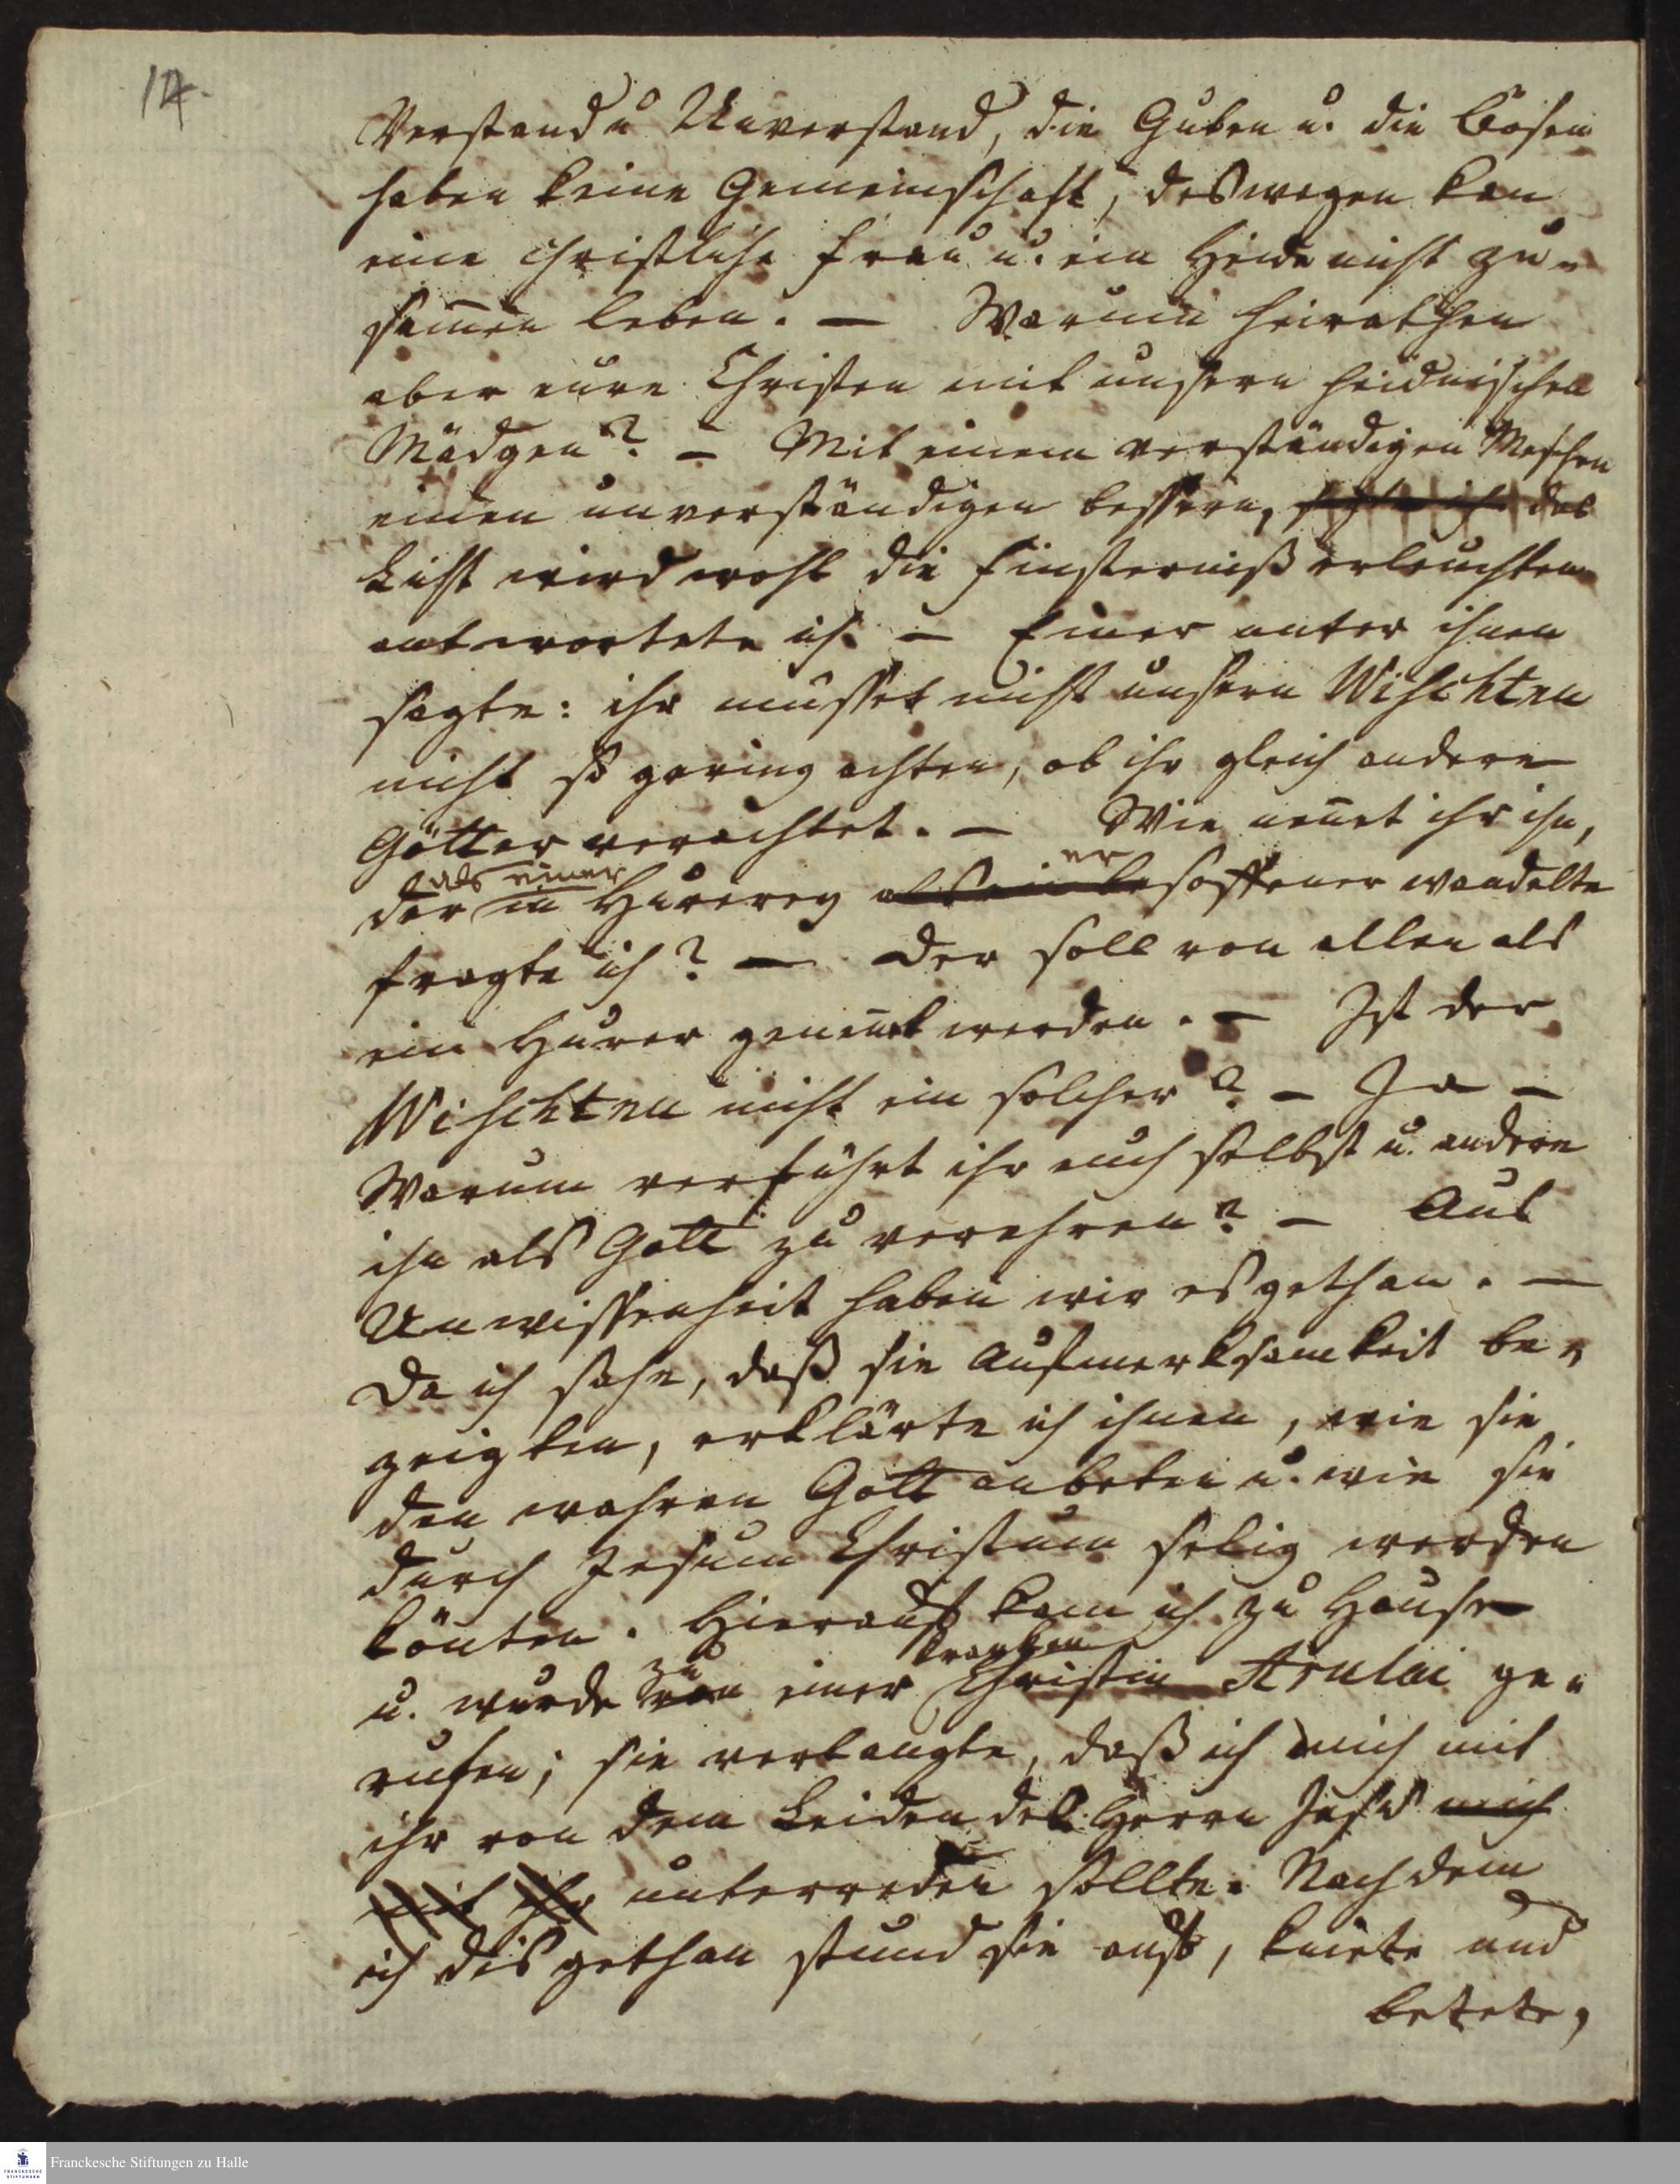 14.
Verstand u Unverstand, die Guten u. die Bösen
haben keine Gemeinschaft, deswegen kan
eine christliche Frau u. ein Heide nicht zu-
sam̄en leben. — Warum heirathen
aber eure Christen mit unsern heidnischen
Mädgen? — Mit einem verständigen Menschen
einen unverständigen bessern, das
Licht wird wohl die Finsterniß erleuchten
antwortete ich. — Einer unter ihnen
sagte: ihr müsset nicht unsern Wischtnu
nicht so gering achten, ob ihr gleich andere
Götter verachtet. — Wie nen̄et ihr ihn,
als einer er
der in Hurerey als ein besoffener wandelte
fragte ich? — Der soll von allen als
ein Hurer genen̄t werden. — Ist der
Wischtnu nicht ein solcher? — Ja —
Warum verführt ihr euch selbst u. andere
ihn als Gott zu verehren? — Aus
Unwissenheit haben wir es gethan. —
Da ich sahe, daß sie Aufmerksamkeit be-
zeigten, erklärte ich ihnen, wie sie
den wahren Gott anbeten u. wie sie
durch Jesum Christum selig werden
könten. Hierauf kam ich zu Hause
zu kranken
u. wurde von einer Christin Arulai ge-
rufen; sie verlangte, daß ich mich mit
ihr von dem Leiden des Herrn Jesu mich
mit ihr unterreden sollte. Nachdem
ich dis gethan stund sie auf, kniete und
betete,
Franckesche Stiftungen zu Halle
FRANCKESCHE
STIFTUNGEN